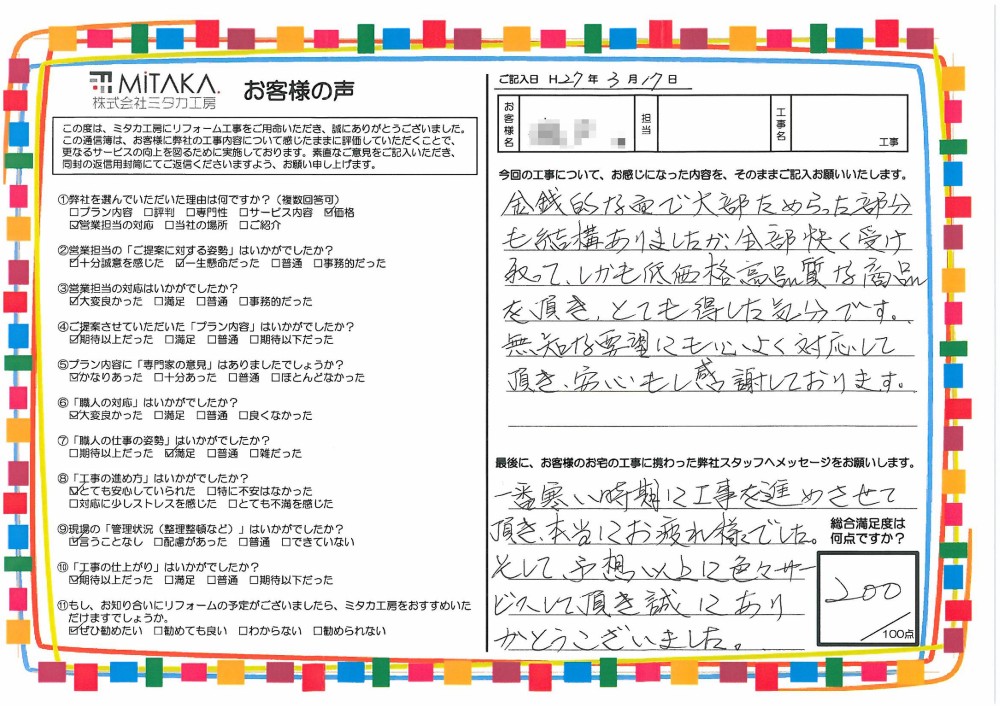 MiTAKA.
株式会社ミタカ工房
お客様の声
この度は、ミタカ工房にリフォーム工事をご用命いただき、誠にありがとうございました。
この通信簿は、お客様に弊社の工事内容について感じたままに評価していただくことで、
更なるサービスの向上を図るために実施しております。素直なご意見をご記入いただき、
同封の返信用封筒にてご返信くださいますよう、お願い申し上げます。
①弊社を選んでいただいた理由は何ですか?(複数回答可)
□プラン内容 □評判 □専門性 □サービス内容 ☑価格
☑営業担当の対応 □当社の場所 □ご紹介
②営業担当の「ご提案に対する姿勢」はいかがでしたか?
☑十分誠意を感じた ☑一生懸命だった □普通 □事務的だった
③営業担当の対応はいかがでしたか?
☑大変良かった □満足 □普通 □事務的だった
④ご提案させていただいた「プラン内容」はいかがでしたか?
☑期待以上だった □満足 □普通 □期待以下だった
⑤プラン内容に「専門家の意見」はありましたでしょうか?
☑かなりあった □十分あった □普通 □ほとんどなかった
⑥「職人の対応」はいかがでしたか?
☑大変良かった □満足 □普通 □良くなかった
⑦「職人の仕事の姿勢」はいかがでしたか?
□期待以上だった ☑満足 □普通 □雑だった
⑧「工事の進め方」はいかがでしたか?
☑とても安心していられた □特に不安はなかった
□対応に少しストレスを感じた □とても不満を感じた
⑨現場の「管理状況(整理整頓など)」はいかがでしたか?
☑言うことなし □配慮があった □普通 □できていない
⑩「工事の仕上がり」はいかがでしたか?
☑期待以上だった □満足 □普通 □期待以下だった
⑪もし、お知り合いにリフォームの予定がございましたら、ミタカ工房をおすすめいた
だけますでしょうか。
☑ぜひ勧めたい □勧めても良い □わからない □勧められない
ご記入日 H.27年 3月 17日
お客様名
担当
工事名
工事
今回の工事について、お感じになった内容を、そのままご記入お願いいたします。
金銭的な面で大部ためらった部分
も結構ありましたが、全部快く受け
取って、しかも低価格高品質な商品
を頂き、とても得した気分です。
無知な要望にも心よく対応して
頂き、安心もし感謝しております。
最後に、お客様のお宅の工事に携わった弊社スタッフへメッセージをお願いします。
一番寒い時期に工事を進めさせて
頂き、本当にお疲れ様でした。
そして予想以上に色々サー
ビスして頂き誠にあり
がとうございました。
総合満足度は
何点ですか?
200
/100点